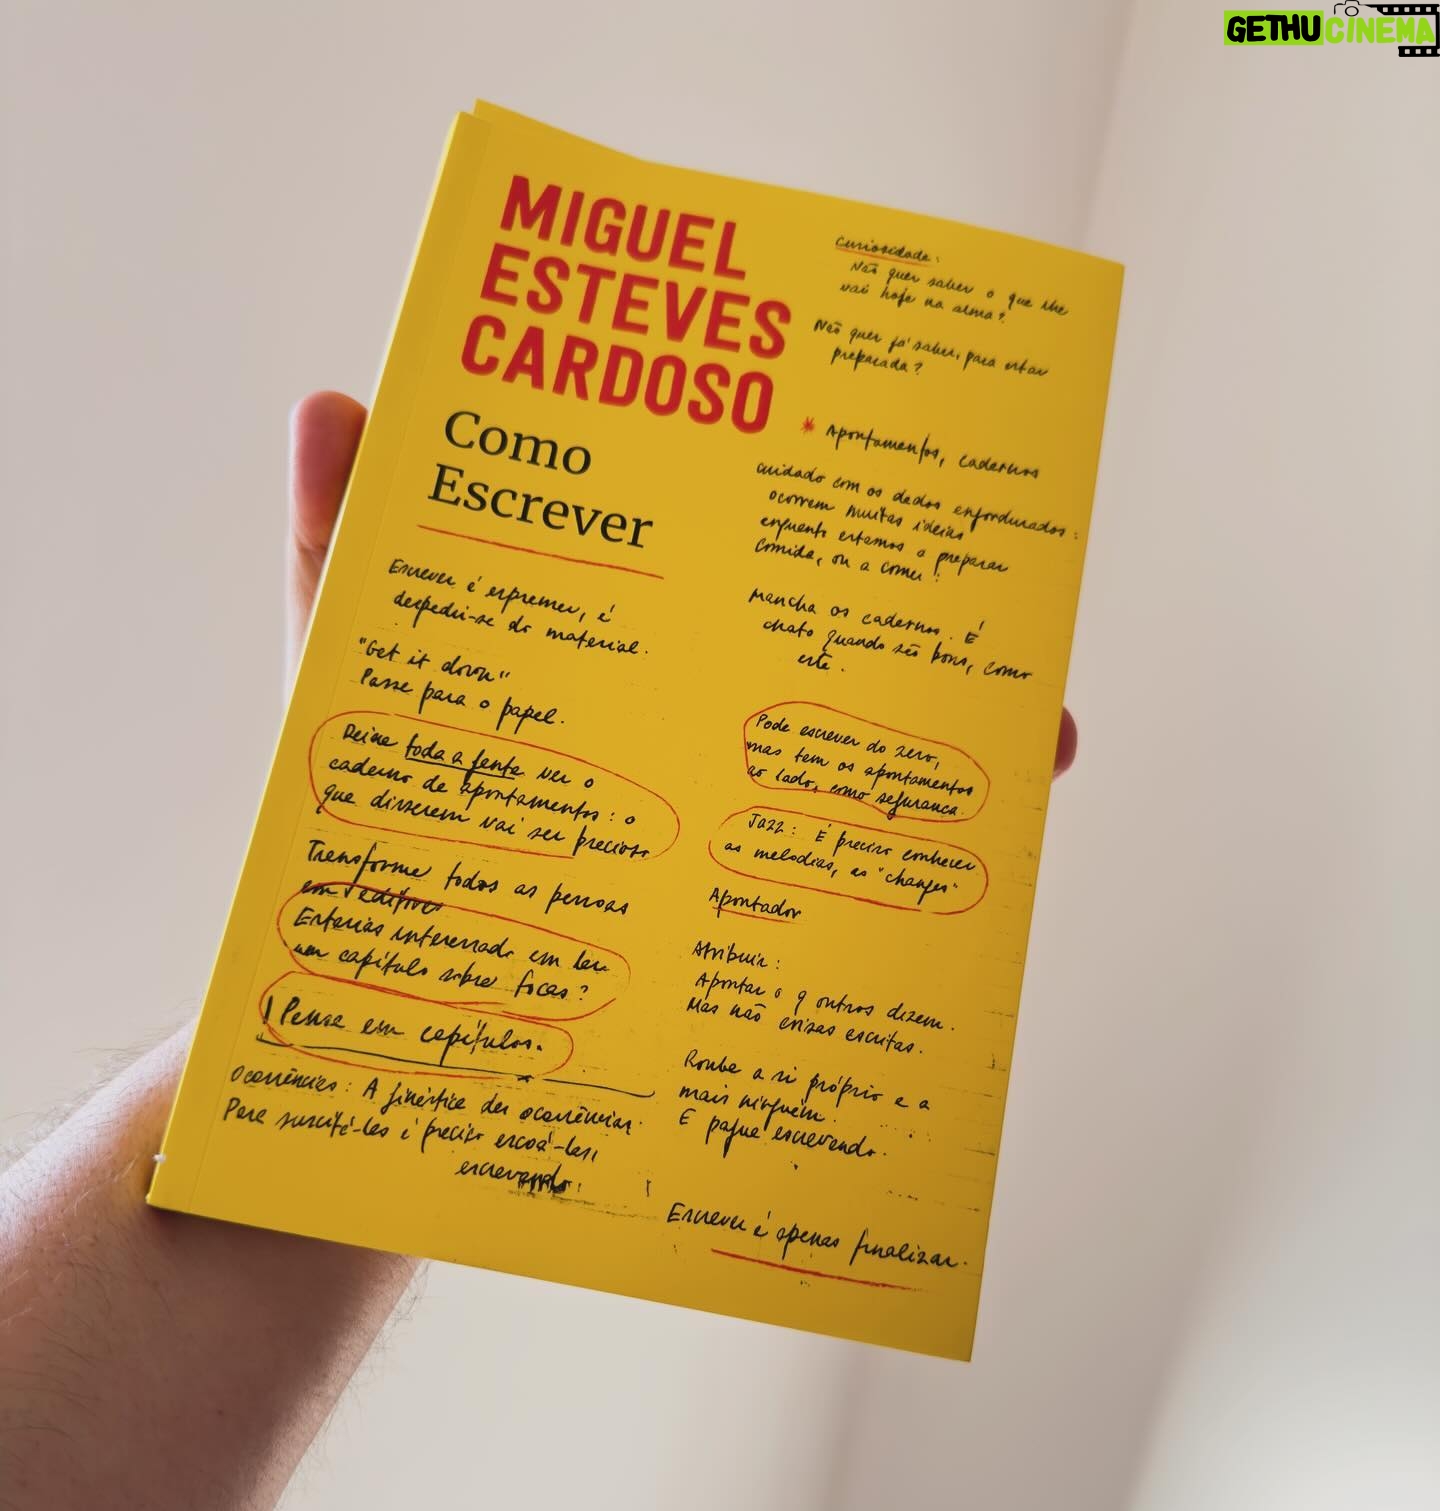 GETHUCINEMA
MIGUEL
ESTEVES
CARDOSO
Como
Escrever
Escrever é espremer, é
despedir-se do material.
"Get it down"
Passe para o papel.
Deixe toda a gente ver o
caderno de apontamentos: o
que disserem vai ser precioso
Transforme todos as pessoas
em editores
Estarias interessado em ler
um capítulo sobre focas?
! Pense em capítulos.
Ocorrências: A ginástica das ocorrências.
Para suscitá-las é preciso escoá-las,
escrevendo.
Curiosidade:
Não quer saber o que lhe
vai hoje na alma?
Não quer já saber, para estar
preparada?
* Apontamentos, cadernos
cuidado com os dedos engordurados:
ocorrem muitas ideias
enquanto estamos a preparar
comida, ou a comer!
Mancha os cadernos. É
chato quando são bons, como
este.
Pode escrever do zero,
mas tem os apontamentos
ao lado, como segurança.
Jazz: É preciso conhecer
as melodias, as "changes"
Apontador
Atribuir:
Apontar o q outros dizem.
Mas não coisas escritas.
Roube a si próprio e a
mais ninguém.
E pague escrevendo.
Escrever é apenas finalizar.